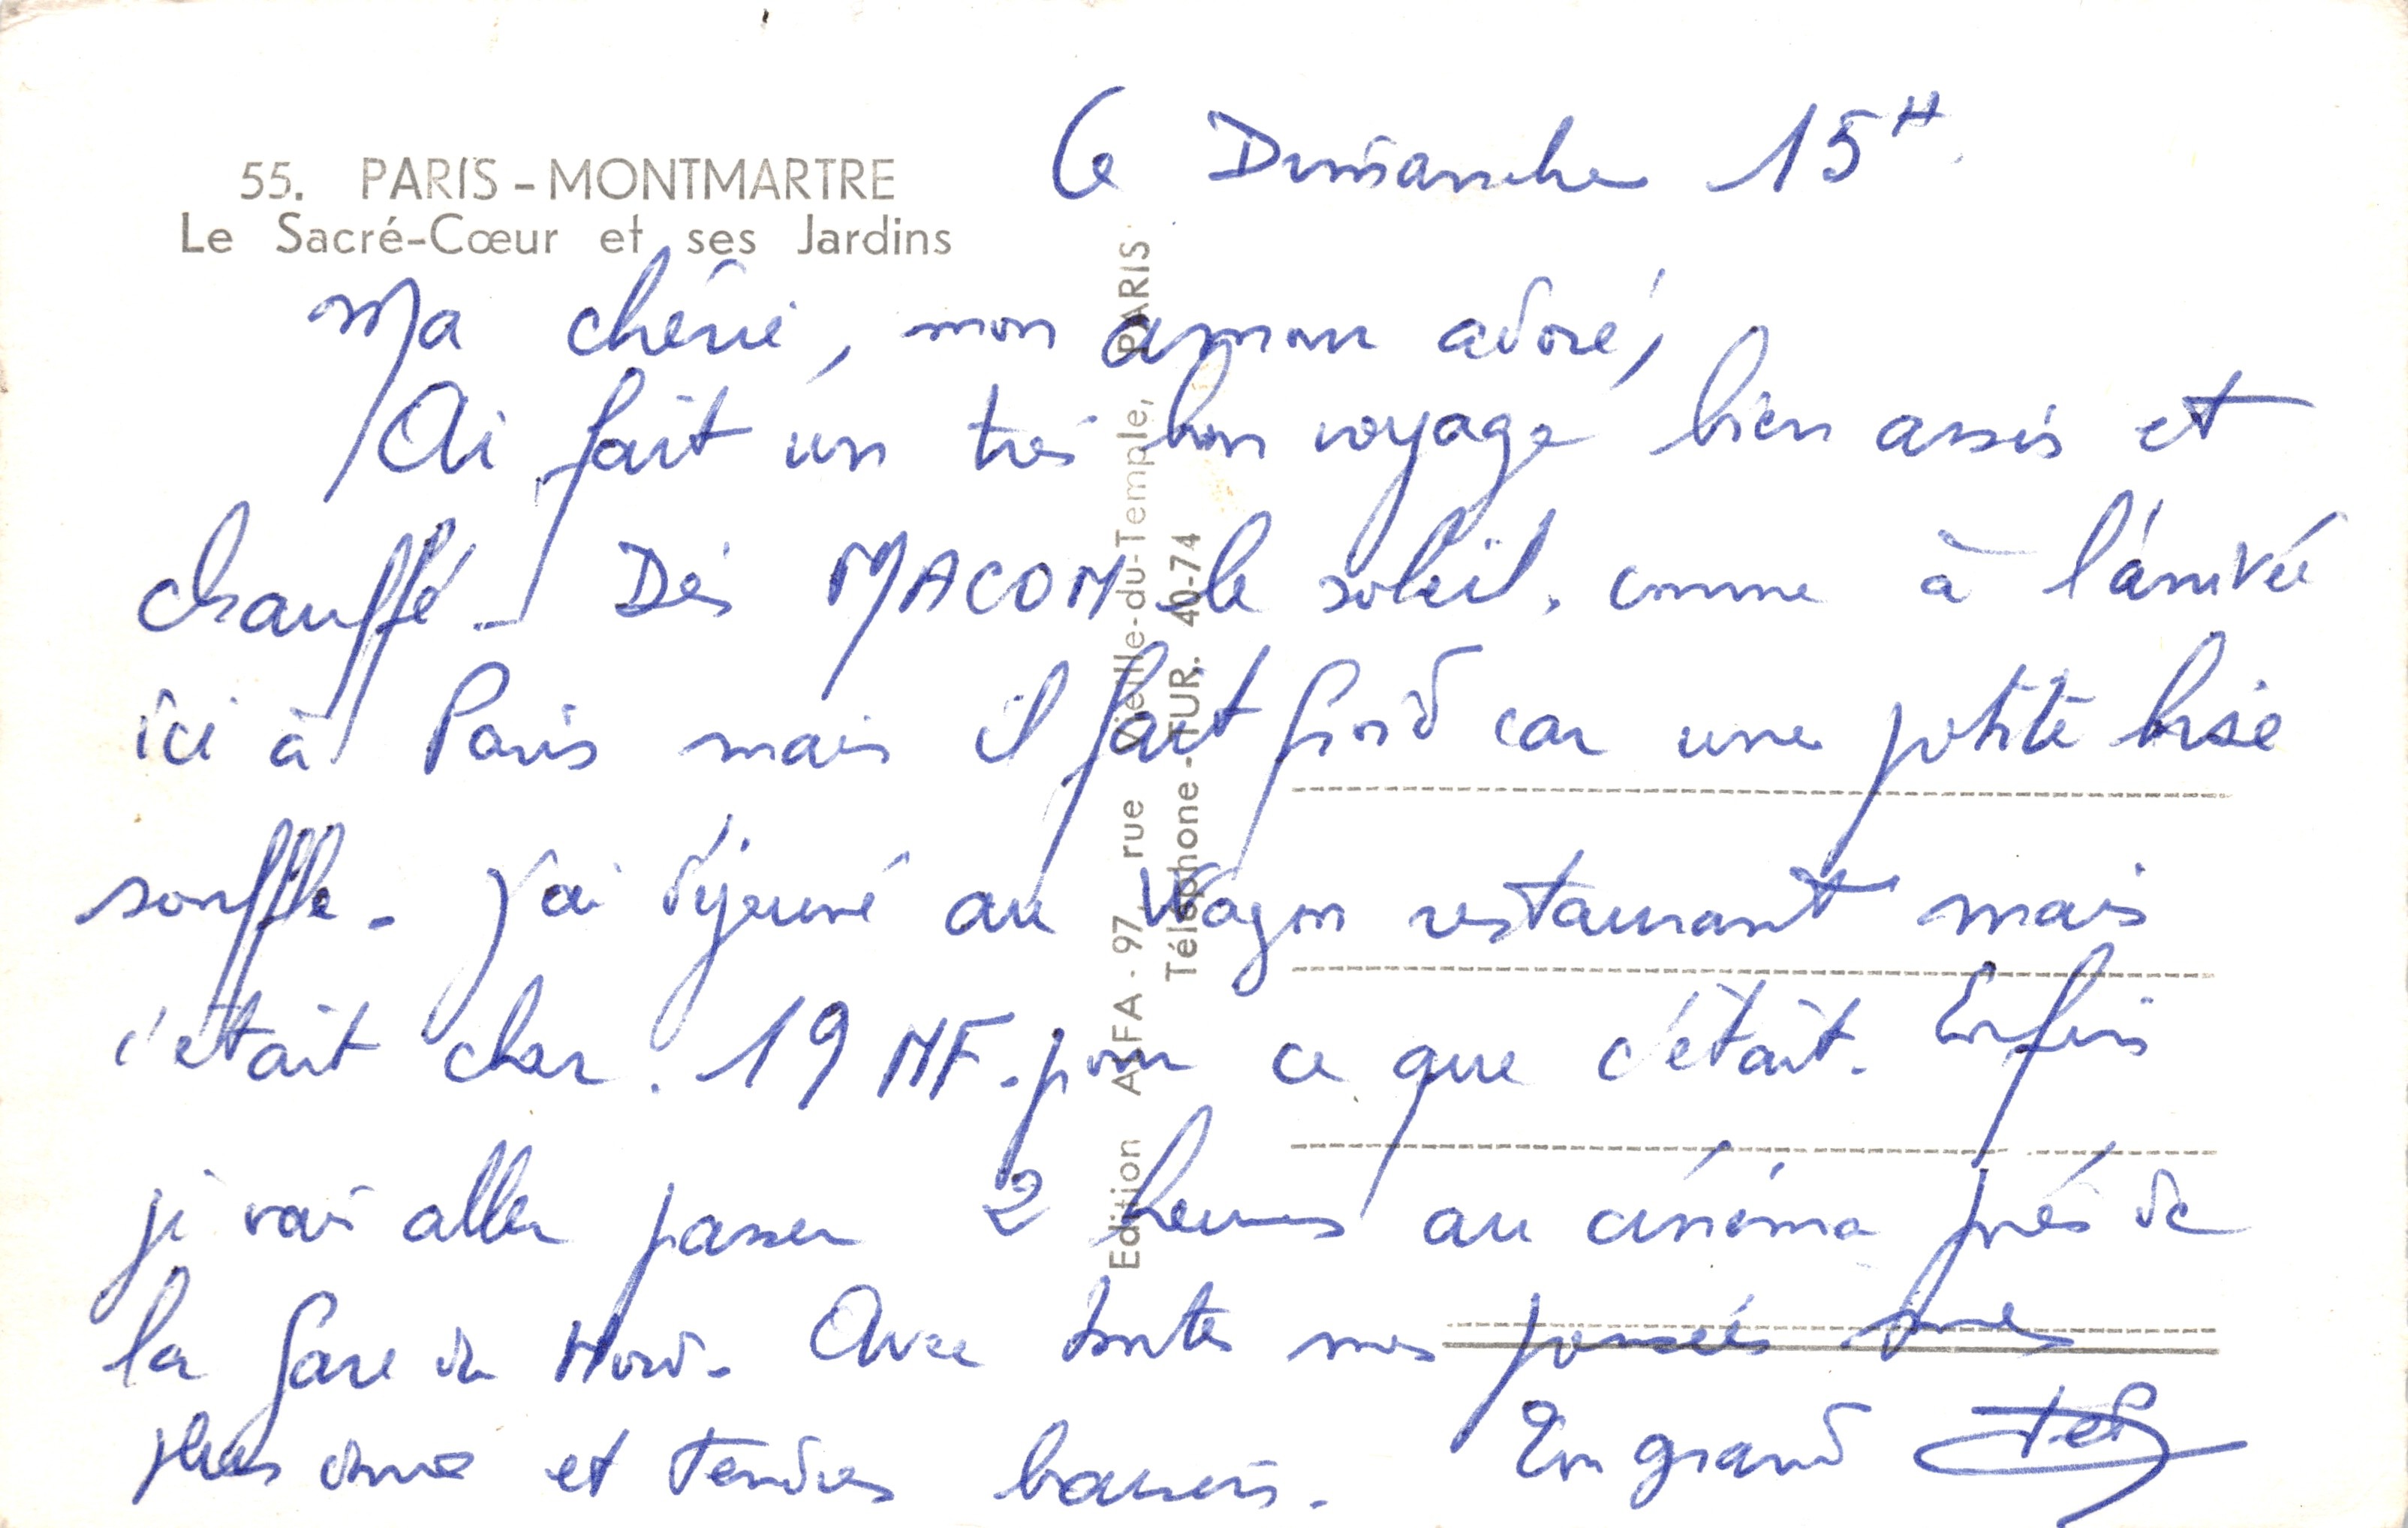 55. PARIS - MONTMARTRE
Le Sacré-Cœur et ses Jardins
Le Dimanche 15H.
Ma chérie, mon amour adoré,
Ai fait un très bon voyage bien assis et
chauffé - Dès MACON le soleil. comme à l'arrivée
ici à Paris mais il fait froid car une petite bise
souffle - J'ai déjeuné au Wagon restaurant mais
c'était cher. 19 NF. pour ce que c'était. Enfin
je vais aller passer 2 heures au cinéma près de
la Gare du Nord. Avec toutes mes pensées
plus doux et tendres baisers. Ton grand
Edition AFA - 97, rue Vieille-du-Temple, PARIS
Téléphone - TUR. 40-74